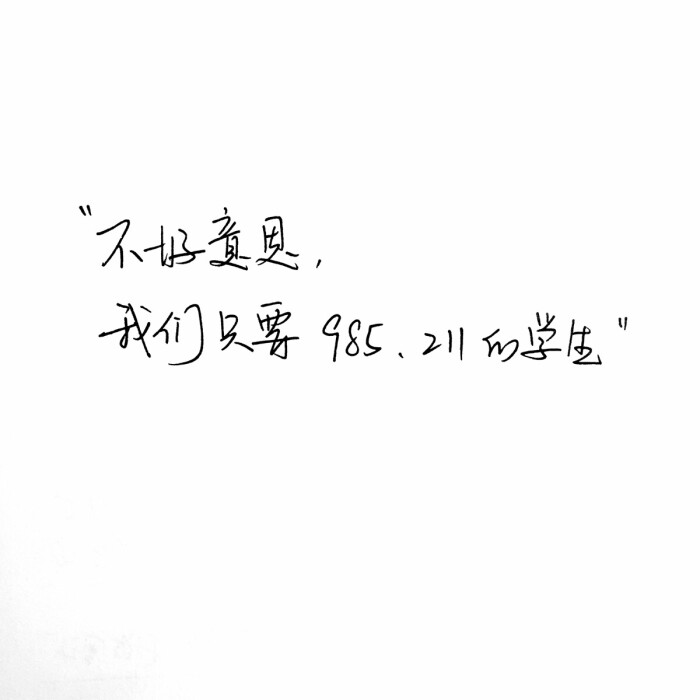 "不好意思，
我们只要 985、211 的学生"